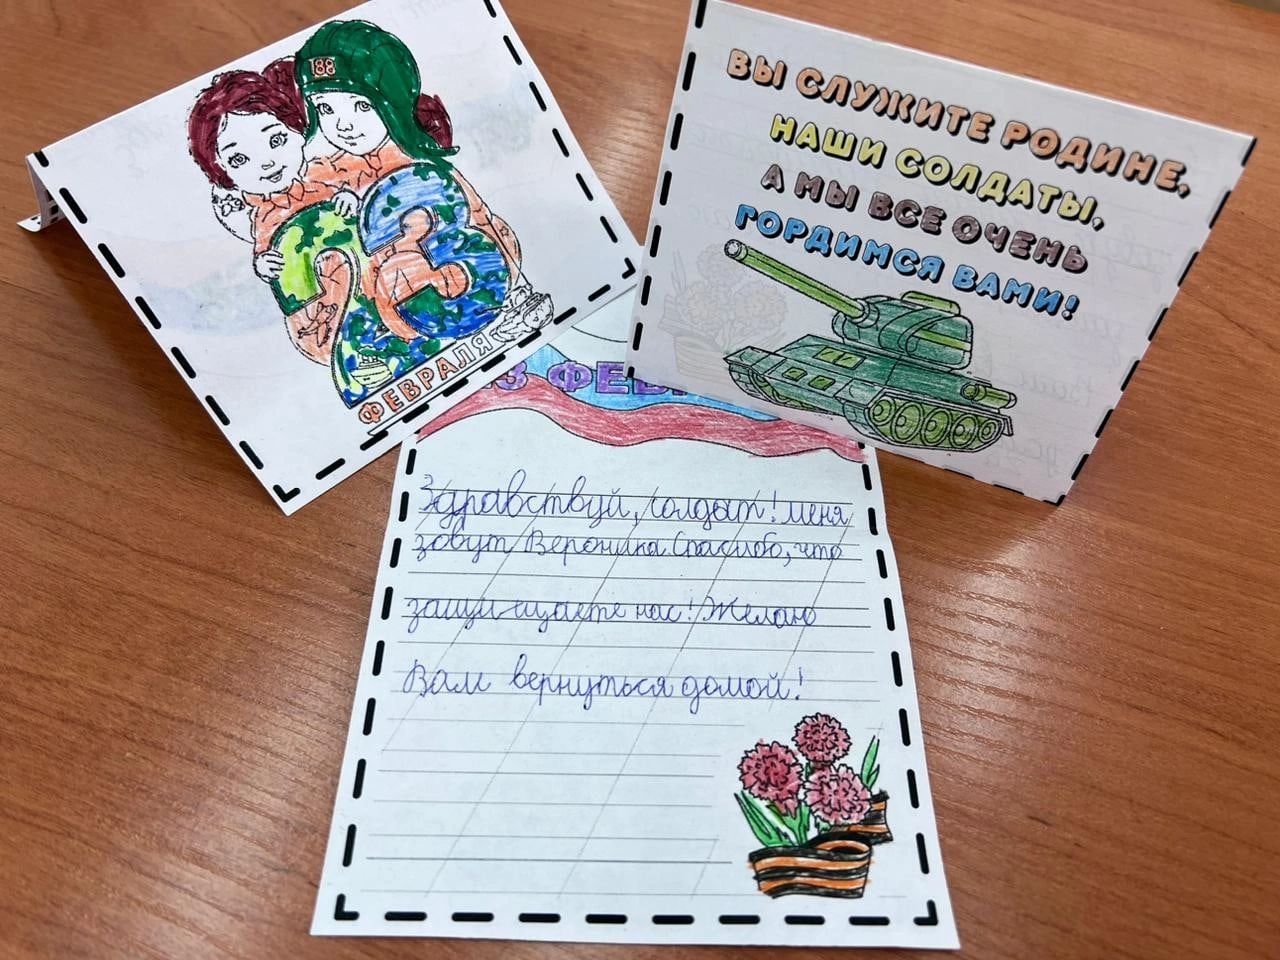 188
23
ФЕВРАЛЯ
ВЫ СЛУЖИТЕ РОДИНЕ,
НАШИ СОЛДАТЫ,
А МЫ ВСЕ ОЧЕНЬ
ГОРДИМСЯ ВАМИ!
3 ФЕВ
Здравствуй, солдат! меня
зовут Вероника. Спасибо, что
защищаете нас! Желаю
Вам вернуться домой!